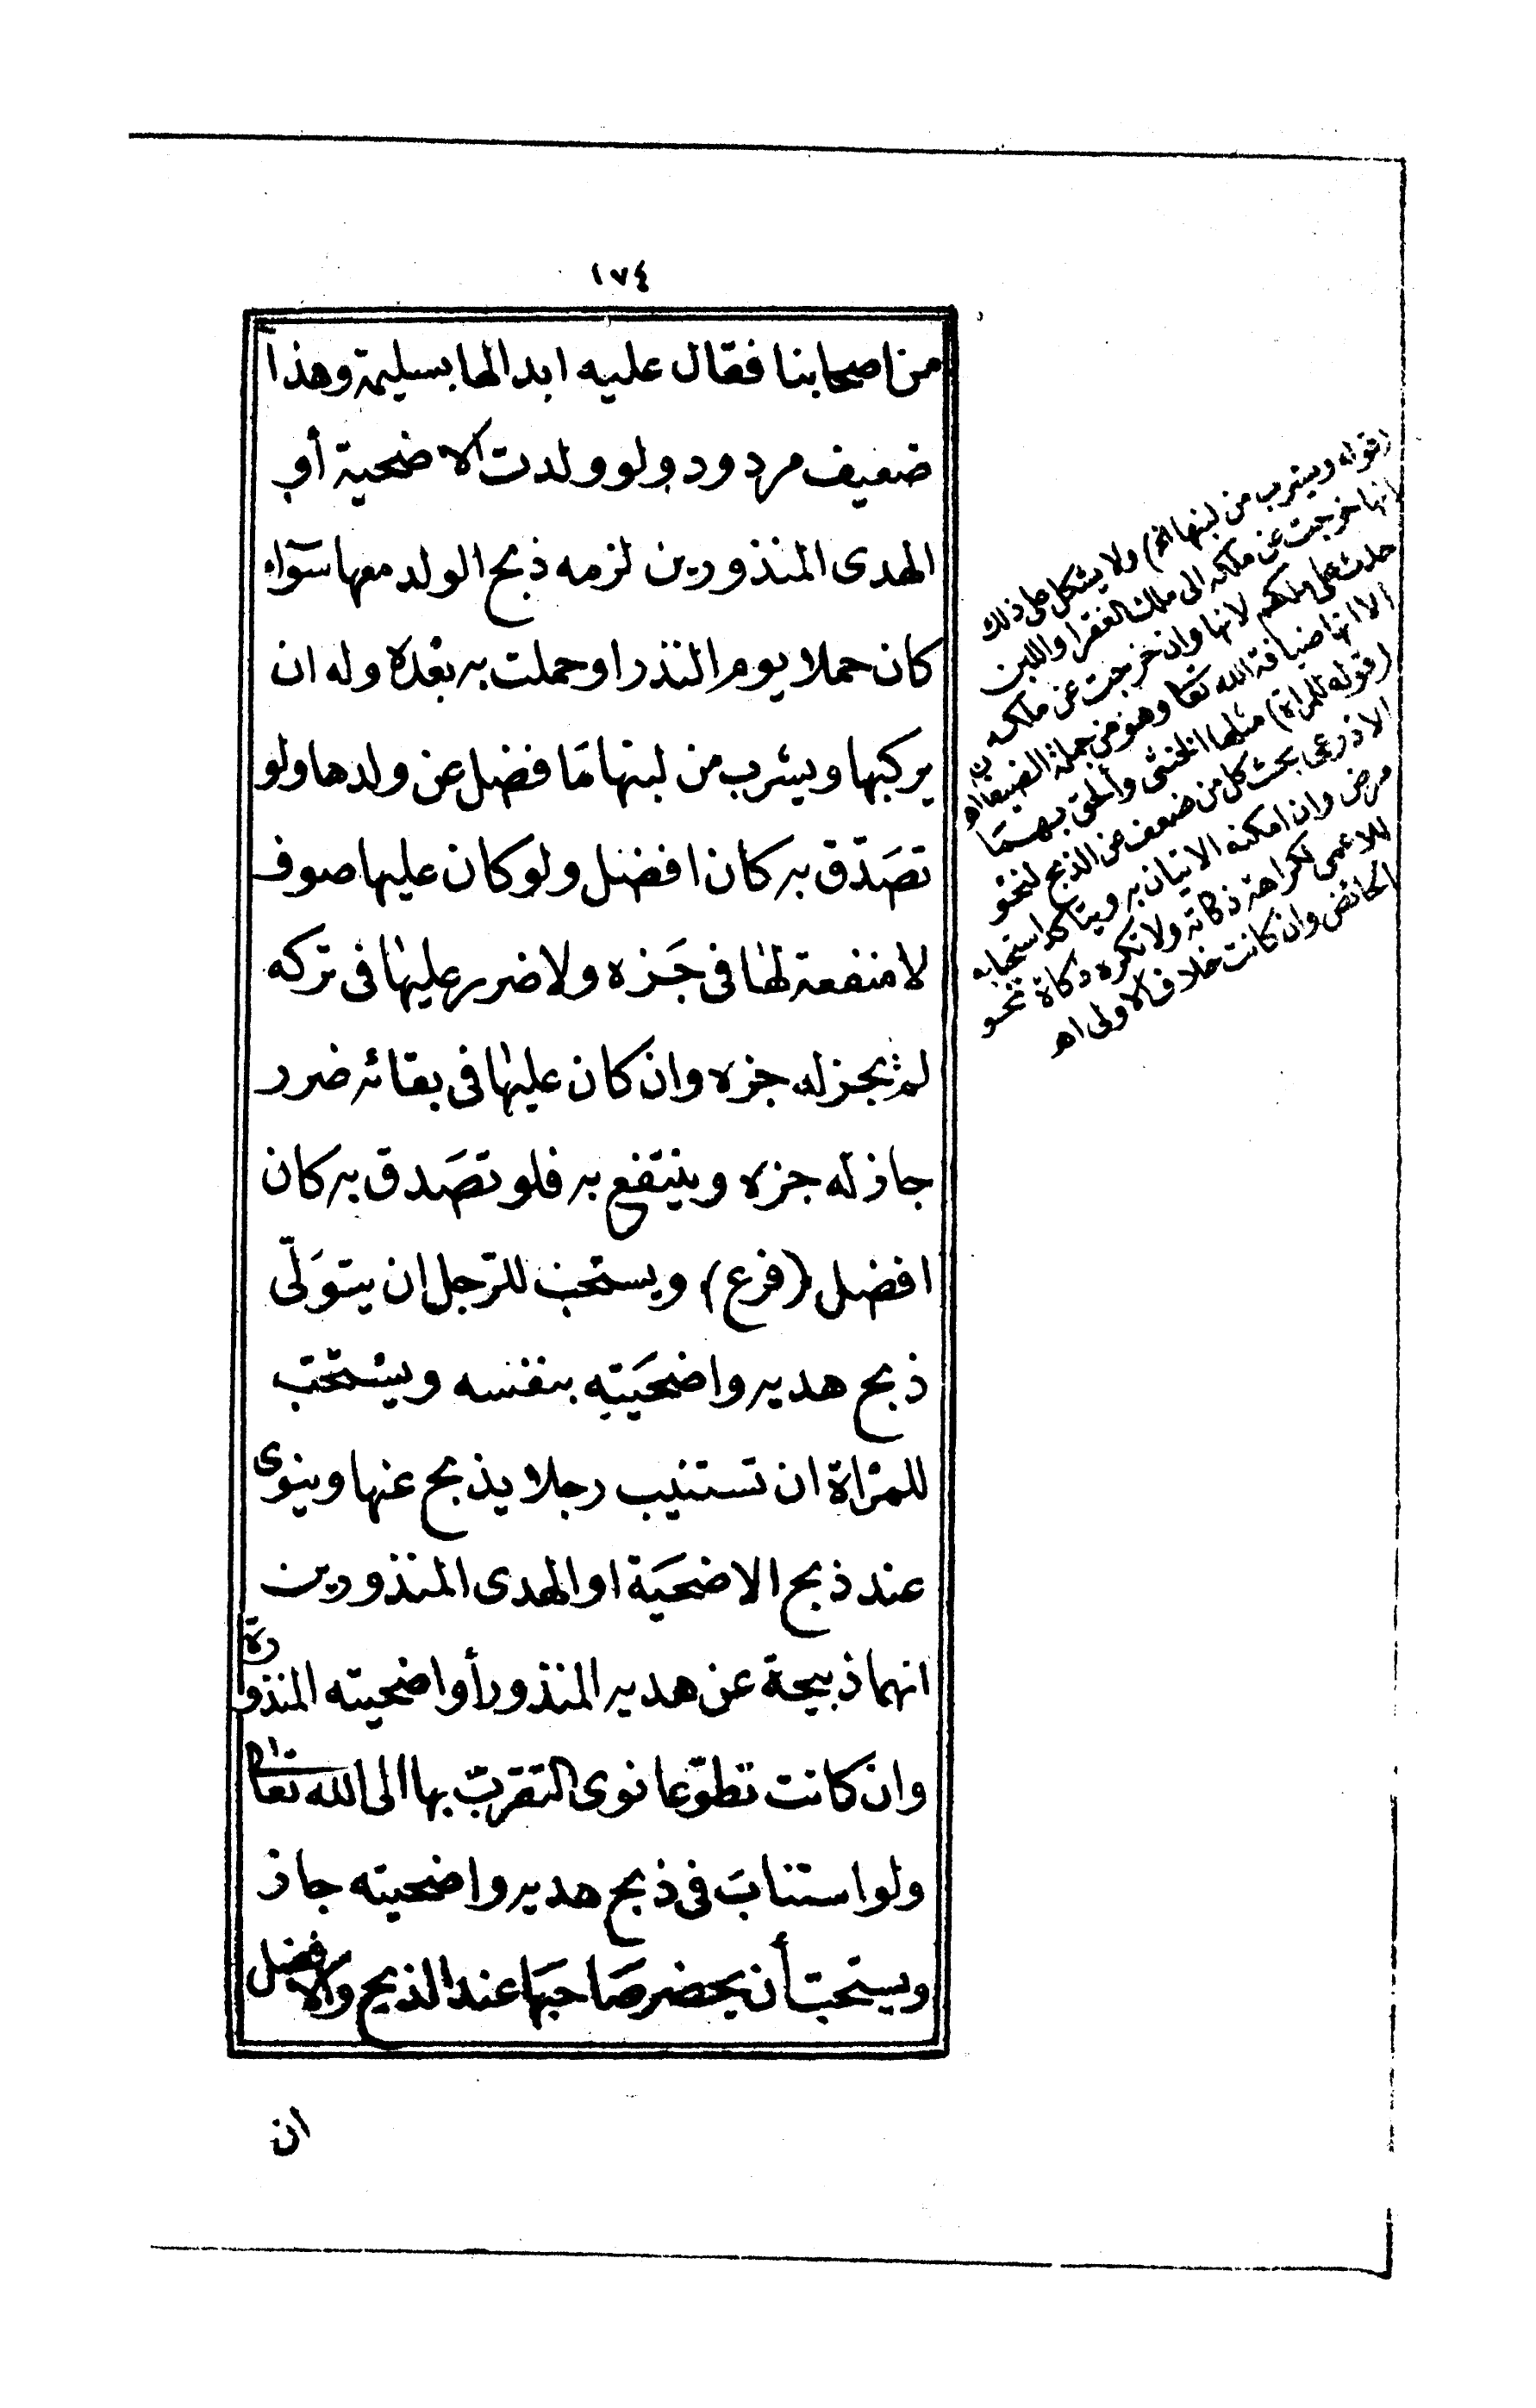 ١٧٤
من اصحابنا فقال عليه ابدالها بسليمة وهذا
ضعيف مردود ولو ولدت الاضحية أو
الهدى المنذورين لزمه ذبح الولد معها سوآء
كان حملا يوم النذر او حملت به بعده وله ان
يركبها ويشرب من لبنها مَا فضل عن ولدها ولو
تصَدّق به كان افضل ولو كان عليها صوف
لا منفعة لها فى جَزه ولا ضرر عليها فى تركه
لم يجز له جزه وان كان عليها فى بقائه ضرر
جاز له جزه وينتفع به فلو تصَدق به كان
افضل (فرع) ويستحب للرّجل ان يتوَلّى
ذبح هديه واضحَيتِه بنفسه ويستحَب
للمرْاة ان تستنيب رجلا يذبح عنها وينوى
عند ذبح الاضحيَة او الهدى المنذورين
انهما ذبيحة عن هديه المنذور أو اضحيته المنذورة
وان كانت تطوّعا نوى التقربّ بها الى الله تعالى
ولو استنابَ فى ذبح هديه واضحيته جاز
ويستحبّ أن يحضر صَاحبَها عند الذبح والافضل
ان
(قوله ويشرب من لبنها الخ) ولا يشكل على ذلك
انها خرجت عن ملكه الى ملك الفقرا واللبن
حدث على ملكهم لانها وان خرجت عن ملكه
الا انها ضيافة الله تعا وهو من جملة الضيفان اه
(قوله للمراة) مثلها الخنثى وألحق بهمَا
الاذرعى بحث كل من ضعف عن الذبح لنحو
مرض وان امكنه الاتيان به ويتاكد استحبابه
للاعمى لكراهة ذكاته ولا تكره ذكاة نحو
الحائض وان كانت خلاف الاولى اه